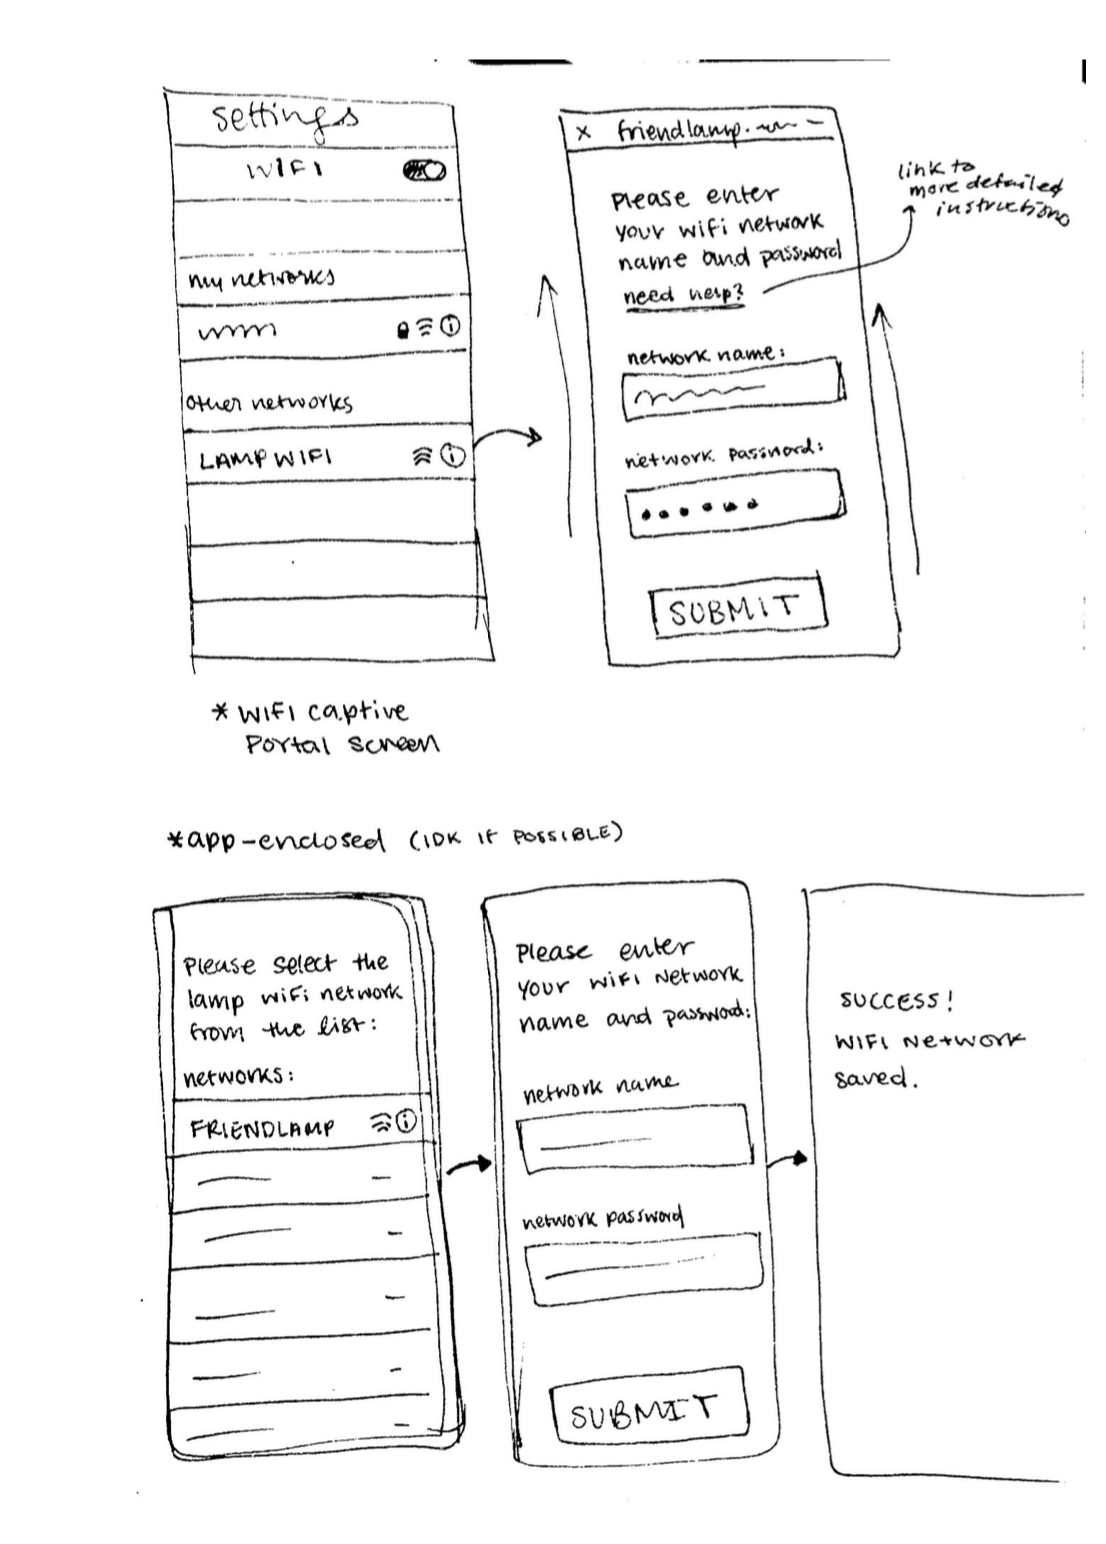 settings
WIFI
my networks
other networks
LAMP WIFI
x friendlamp.
Please enter
your wifi network
name and password
need help?
link to
more detailed
instructions
network name:
network password:
SUBMIT
* WIFI captive
Portal screen
*app-enclosed (IDK IF POSSIBLE)
Please select the
lamp wifi network
from the list:
networks:
FRIENDLAMP
Please enter
your WiFi Network
name and password:
network name
network password
SUBMIT
SUCCESS!
WIFI Network
saved.